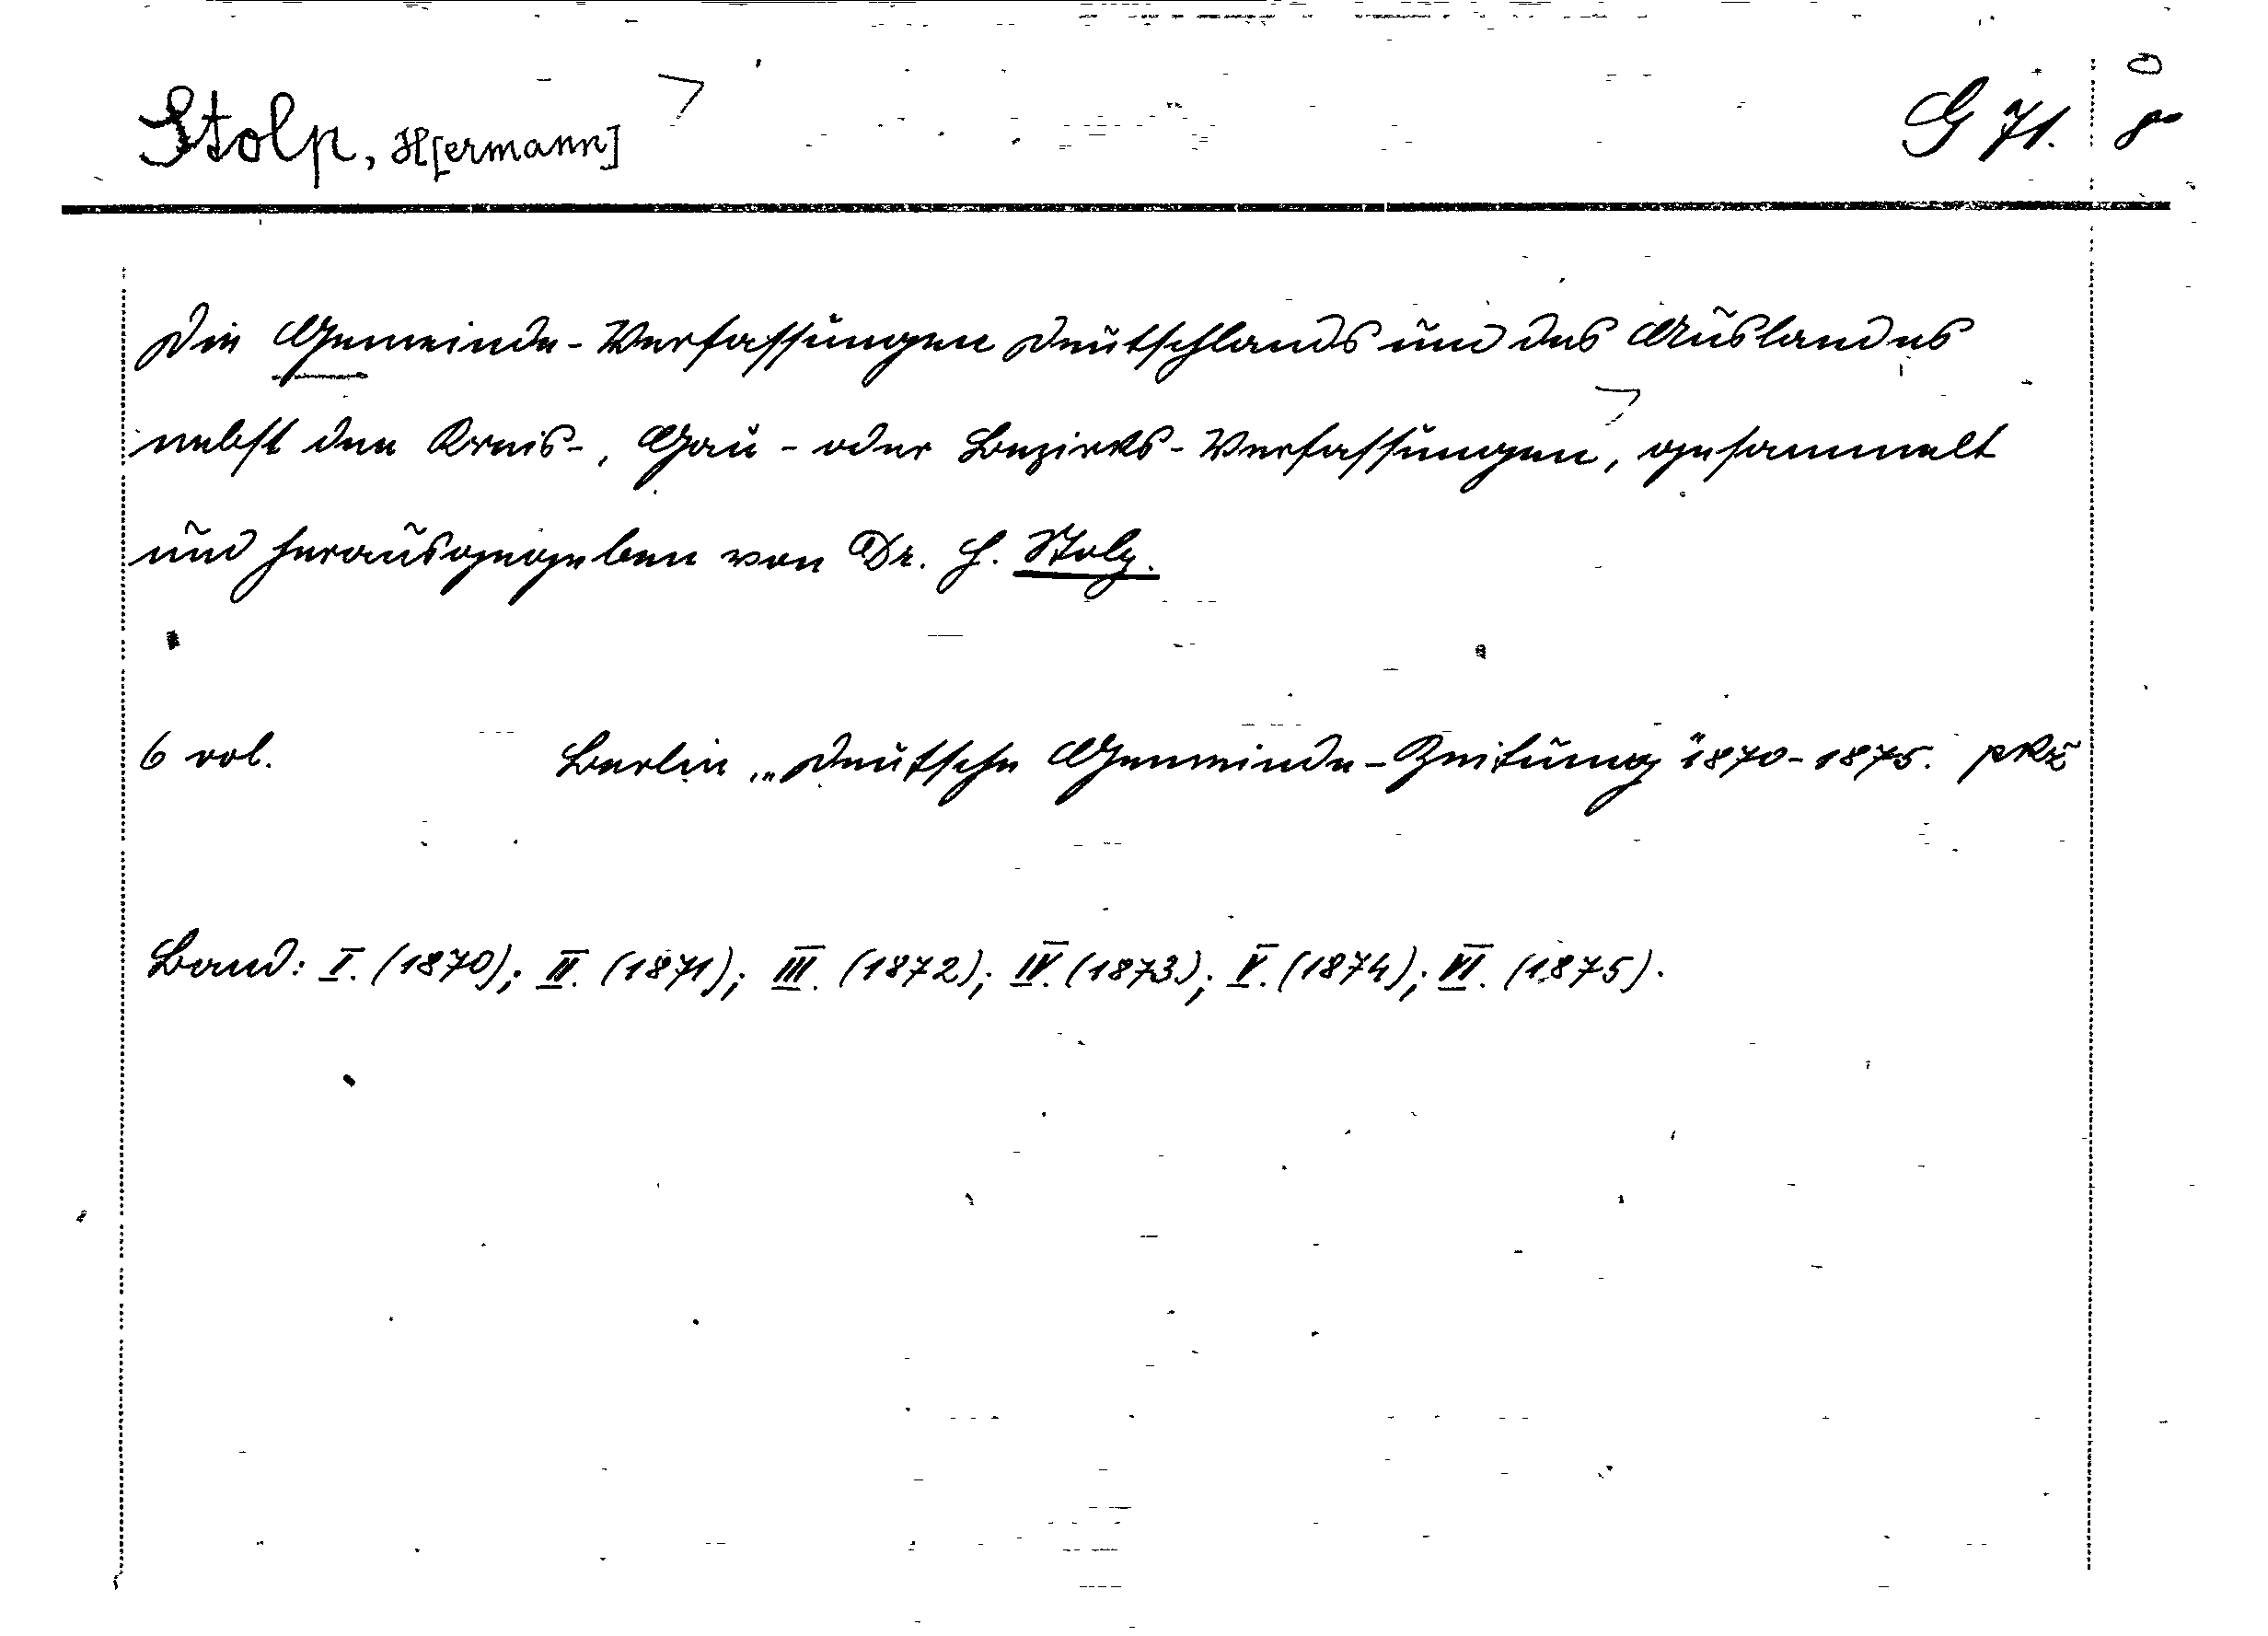 Stolp, H[ermann] G 71. 8°
Die Gemeinde-Verfassungen Deutschlands und des Auslandes
nebst den Kreis-, Gau- oder Bezirks-Verfassungen, gesammelt
und herausgegeben von Dr. H. Stolp.
6 vol. Berlin, „Deutsche Gemeinde-Zeitung" 1870-1875.
Band: I. (1870); II. (1871); III. (1872); IV. (1873); V. (1874); VI. (1875).